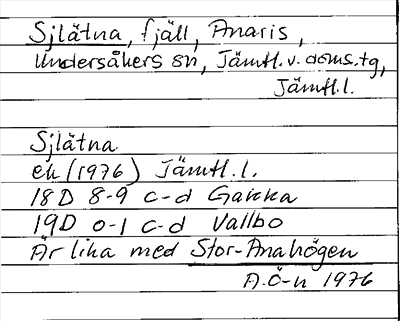 Sjlätna, fjäll, Anaris,
Undersåkers sn, Jämtl. v. doms.tg,
Jämtl. l.
Sjlätna
ek (1976) Jämtl. l.
18D 8-9 c-d Gakka
19D 0-1 c-d Vallbo
Är lika med Stor-Anahögen
A. Ö-n 1976